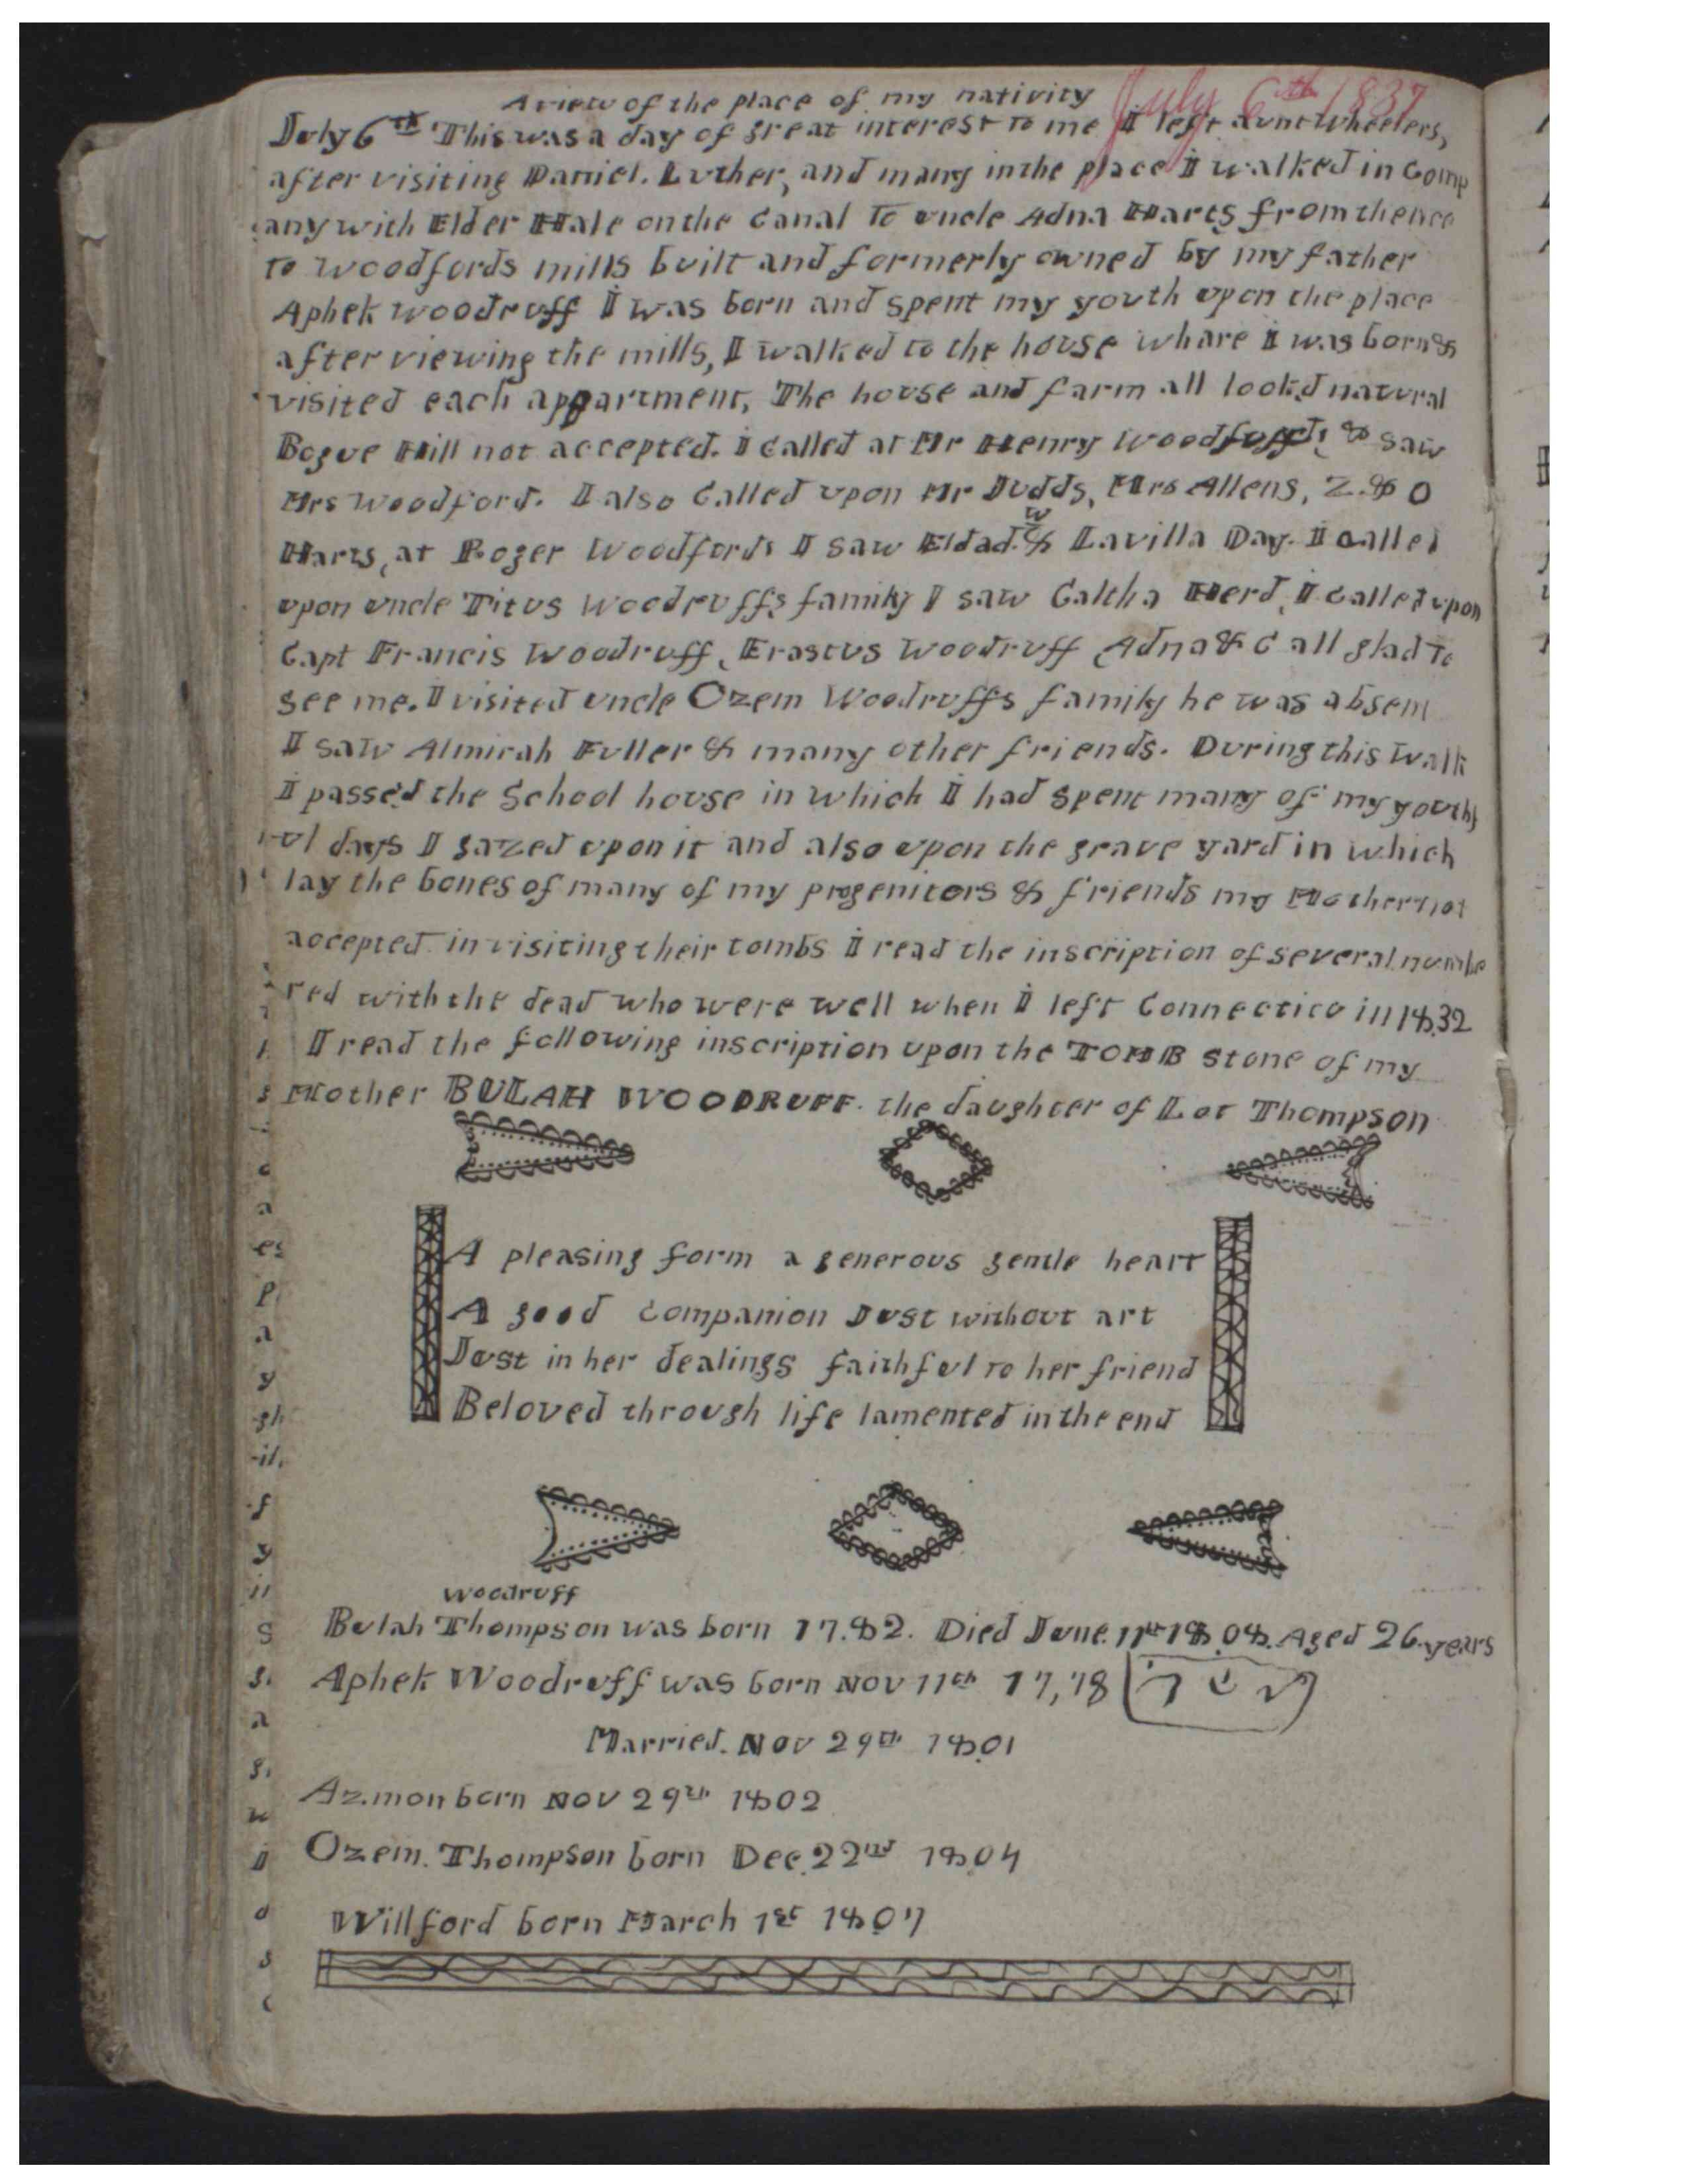 A view of the place of my nativity
July 6th 1837
July 6th This was a day of great interest to me I left aunt wheelers,
after visiting Daniel. Luther, and many in the place I walked in comp
any with Elder Hale on the Canal To uncle Adna Harts from thence
to woodfords mills built and formerly owned by my father
Aphek woodruff I was born and spent my youth upon the place
after viewing the mills, I walked to the house whare I was born &
visited each appartment, The house and farm all look'd natural
Bogue Hill not accepted. I called at Mr Henry Woodfords & saw
Mrs Woodford. I also called upon Mr Judds, Mrs Allens, Z. & O
Harts, at Roger Woodfords I saw Eldad. W & Lavilla Day. I called
upon uncle Titus Woodruffs family I saw Caltha Herd, I called upon
Capt Francis Woodruff, Erastus Woodruff Adna & C all glad To
see me. I visited uncle Ozem Woodruffs family he was absent
I saw Almirah Fuller & many other friends. During this walk
I passe'd the School house in which I had spent many of my youthf
ul days I gazed upon it and also upon the grave yard in which
lay the bones of many of my progenitors & friends my Mother not
accepted in visiting their tombs I read the inscription of several numbe
red with the dead who were well when I left Connecticu in 1832
I read the following inscription upon the TOMB stone of my
Mother BULAH WOODRUFF. the daughter of Lot Thompson
A pleasing form a generous gentle heart
A good companion Just without art
Just in her dealings faithful to her friend
Beloved through life lamented in the end
woodruff
Bulah Thompson was born 17.82. Died June. 11th 18.08. Aged 26 years
Aphek Woodruff was born Nov 11th 17,78
Married. Nov 29th 1801
Az.mon born Nov 29th 1802
Ozem. Thompson born Dec. 22nd 1804
Willford born March 1st 1807